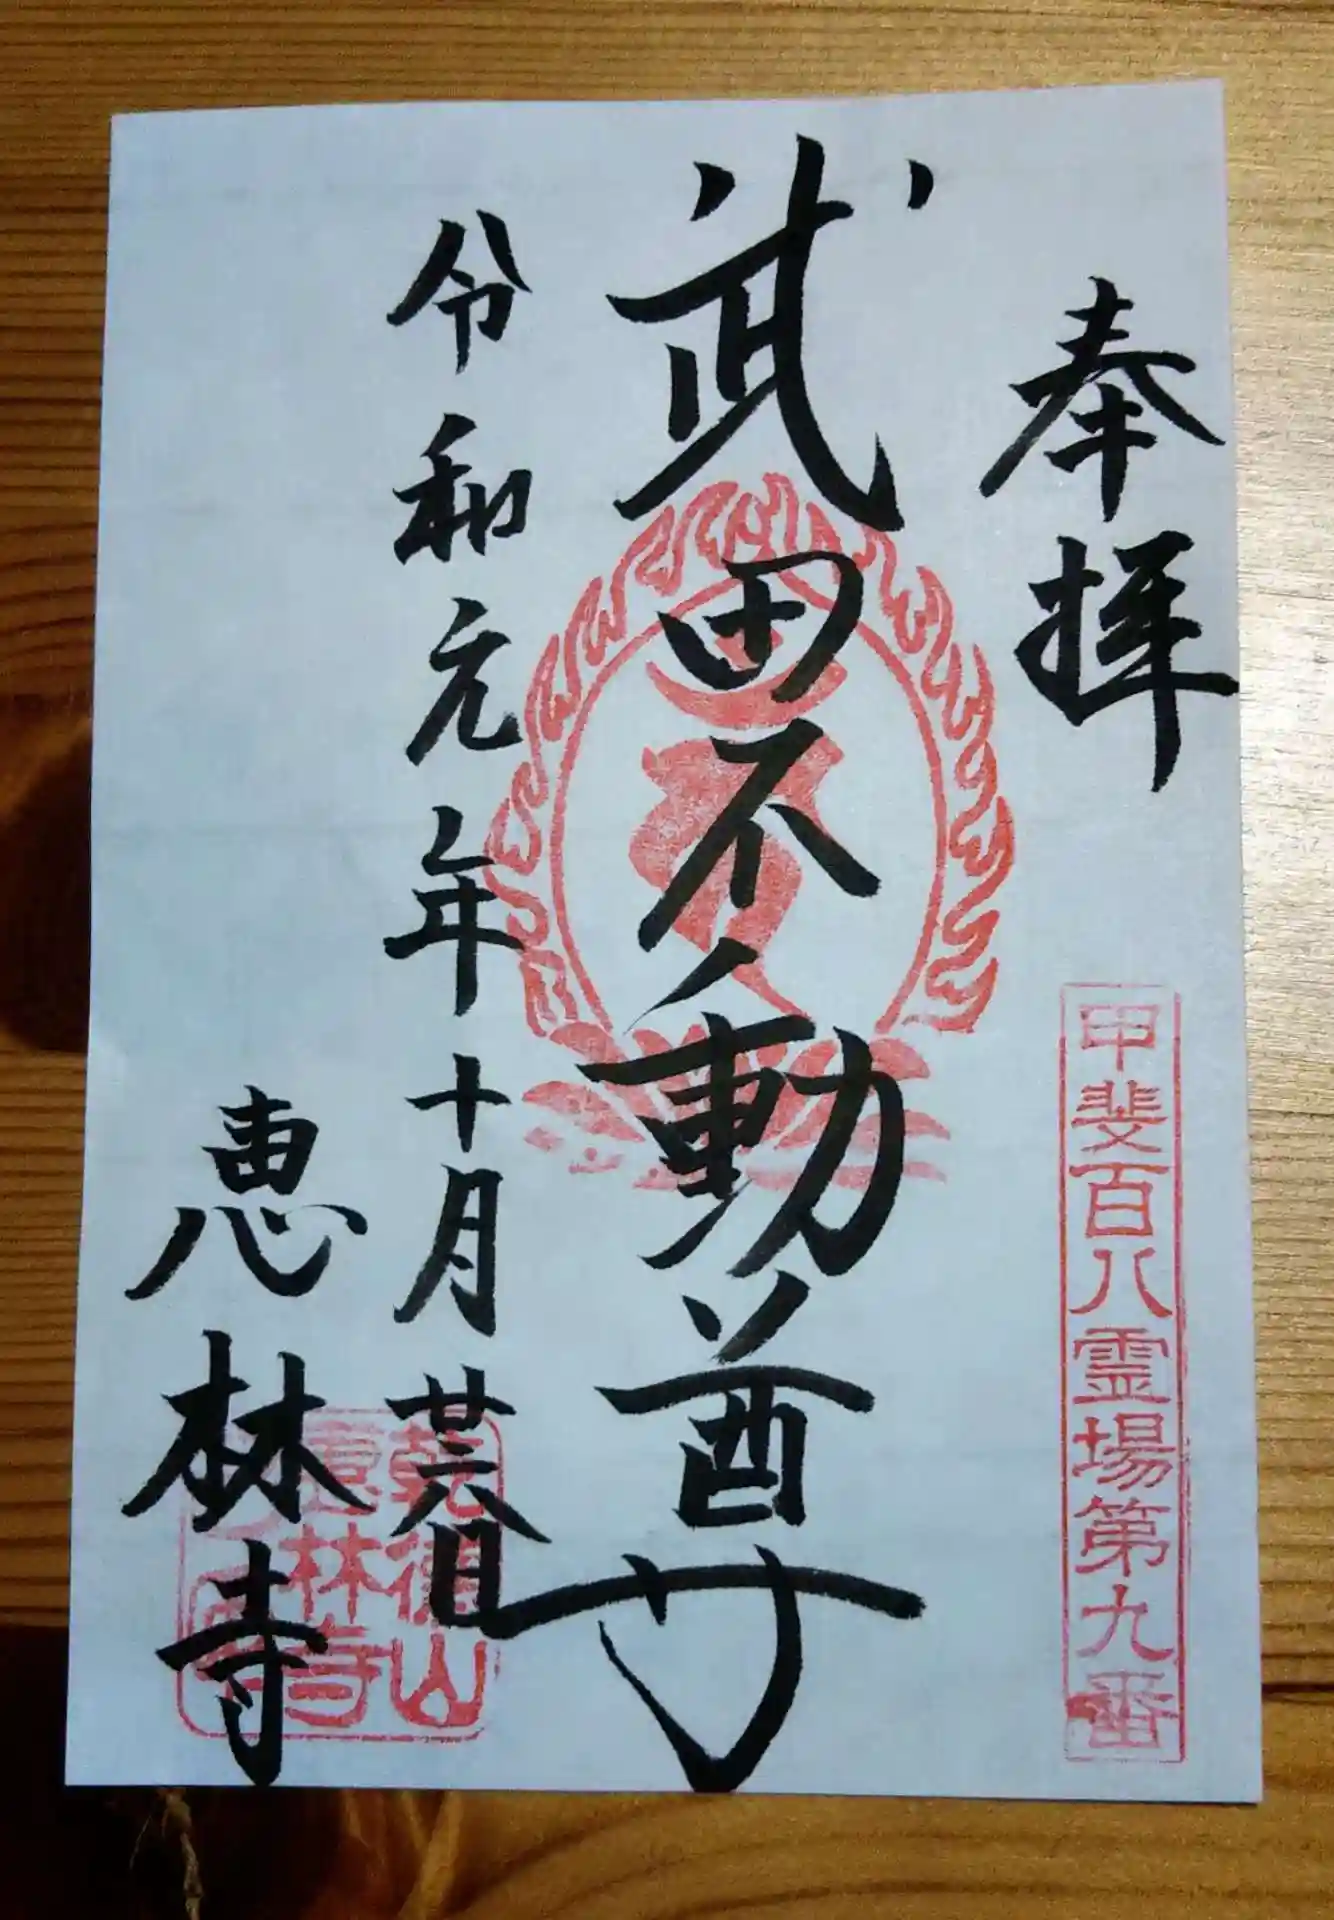 奉拝
甲斐百八霊場第九番
武田不動尊
令和元年十月廿六日
恵林寺
乾徳山
恵林寺